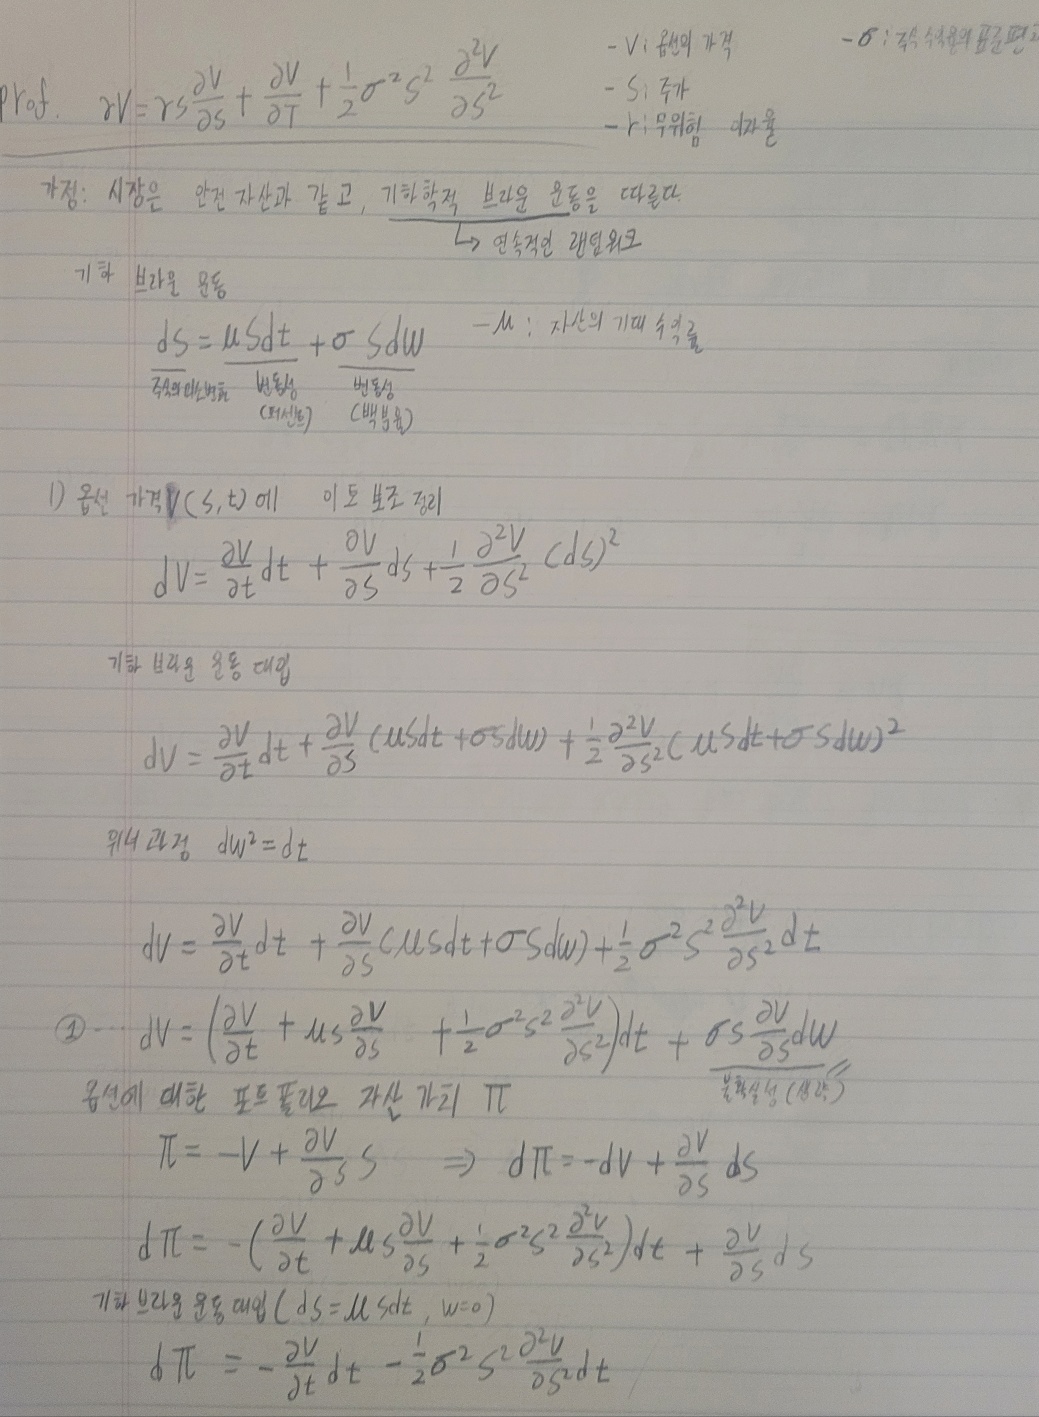 prof. rV = rS ∂V/∂S + ∂V/∂T + 1/2 σ²S² ∂²V/∂S²
- V : 옵션의 가격
- S : 주가
- r : 무위험 이자율
- σ : 주식 수익률의 표준편
가정: 시장은 안전 자산과 같고, 기하학적 브라운 운동을 따른다.
↳ 연속적인 랜덤워크
기하 브라운 운동
dS = μSdt + σSdW
- μ : 자산의 기대 수익률
주식의 미소변화 변동성 변동성
(퍼센트) (백분율)
1) 옵션 가격 V(S,t)에 이토 보조정리
dV = ∂V/∂t dt + ∂V/∂S dS + 1/2 ∂²V/∂S² (dS)²
기하 브라운 운동 대입
dV = ∂V/∂t dt + ∂V/∂S (μSdt + σSdW) + 1/2 ∂²V/∂S² (μSdt + σSdW)²
위너 과정 dW² = dt
dV = ∂V/∂t dt + ∂V/∂S (μSdt + σSdW) + 1/2 σ²S² ∂²V/∂S² dt
① ... dV = (∂V/∂t + μS ∂V/∂S + 1/2 σ²S² ∂²V/∂S²)dt + σS ∂V/∂S dW
불확실성(생략)
옵션에 대한 포트폴리오 자산 가치 Π
Π = -V + ∂V/∂S S ⇒ dΠ = -dV + ∂V/∂S dS
dΠ = -(∂V/∂t + μS ∂V/∂S + 1/2 σ²S² ∂²V/∂S²)dt + ∂V/∂S dS
기하 브라운 운동 대입 (dS = μSdt, W=0)
dΠ = -∂V/∂t dt - 1/2 σ²S² ∂²V/∂S² dt